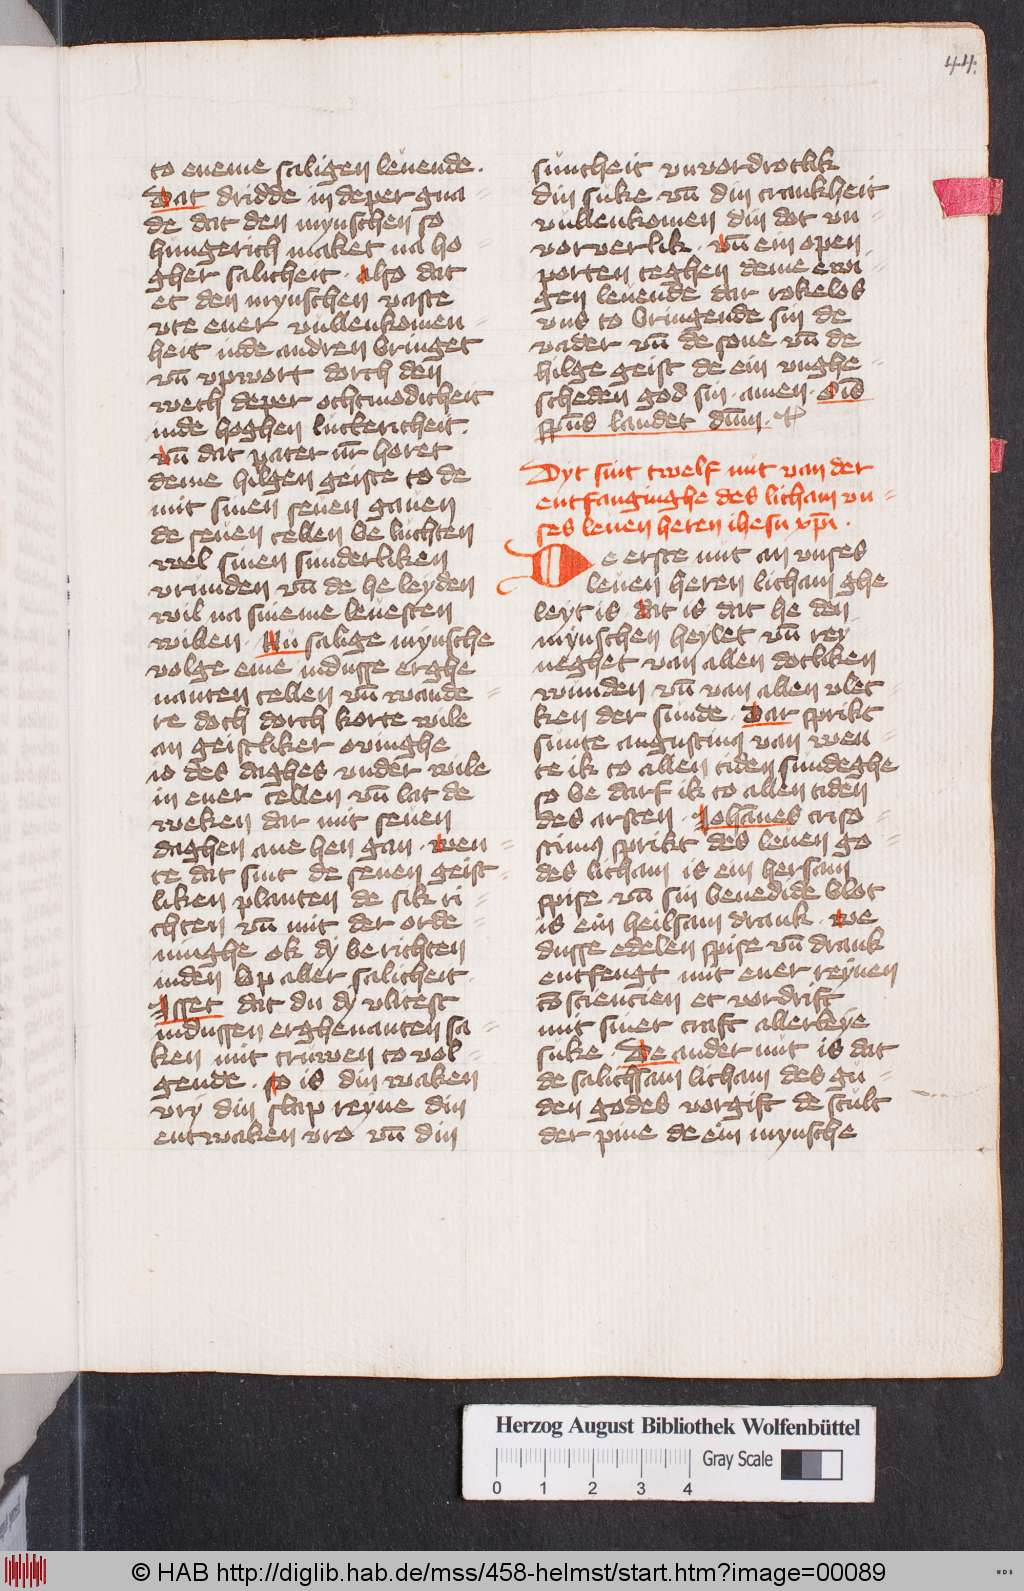 44.
to eneme saligen leuende.
Dat dridde in deper gna
de dat den mynschen so
hungerich maket na ho
gher salicheit. also dat
et den mynschen vaste
vte ener vullenkomen=
heit inde andren bringet
vn̄ vpwort dorch den
wech deper othmodicheit
inde hoghen luckericheit.
vn̄ dat pater nr̄ horet
deme hilgen geiste to de
mit sinen seuen gauen
de seuen cellen be luchten
wel sinen sunderliken
vrunden vn̄ de he leyden
wil na sineme leuesten
willen. Nu salige mynsche
volge eme indusse erghe
nanten cellen vn̄ wande=
re doch dorch korte wile
an geistliker ouinghe
io des daghes vnder wile
in ener cellen vn̄ lat de
weken dar mit seuen
daghen ane hen gan. wen=
te dat sint de seuen geist=
liken planten de sik ri=
chten vn̄ mit der orde=
ninghe ok dy berichten
inden vp aller salicheit.
Isset dat du dy vlitest
indussen erghenanten sa=
ken mit truwen to vol=
gende. so is din waken
vry din slap reyne din
entwaken vro vn̄ din
suntheit vnvordrotlik
din suke vn̄ din crankheit
vullenkomen din dot vn=
vorverlik. vn̄ ein open
porten teghen deme ewi=
gen leuende dar rokelos
vns to bringende sin de
vader vn̄ de sone vn̄ de
hilge geist de ein vnghe=
scheden god sin. amen. Oīs
spūs laudet dnm̄.
Dyt sint twelf nut van der
entfanginghe des licham vn=
ses leuen heren ihesu xp̄i.
De erste nut an vnses
leuen heren licham ghe
leyt is dat is dat he den
mynschen heylet vn̄ rey
neghet van allen dotliken
wunden vn̄ van allen vlet=
ken der sunde. Dar sprikt
sunte augustinus van wen=
te ik to allen tiden sundeghe
so be darf ik to allen tiden
des arsten. Johānes criso=
stimus sprikt des leuen go=
des licham is ein hersam
spise vn̄ sin benedide blot
is ein heilsam drank. we
dusse edelen spise vn̄ drank
entfengt mit ener reynen
cōsciencien et vordrift
mit siner craft allerleye
suke. De ander nut is dat
de salichsam licham des gu=
den godes vorgift de scult
der pine de ein mynsche
Herzog August Bibliothek Wolfenbüttel
Gray Scale
0 1 2 3 4
© HAB http://diglib.hab.de/mss/458-helmst/start.htm?image=00089